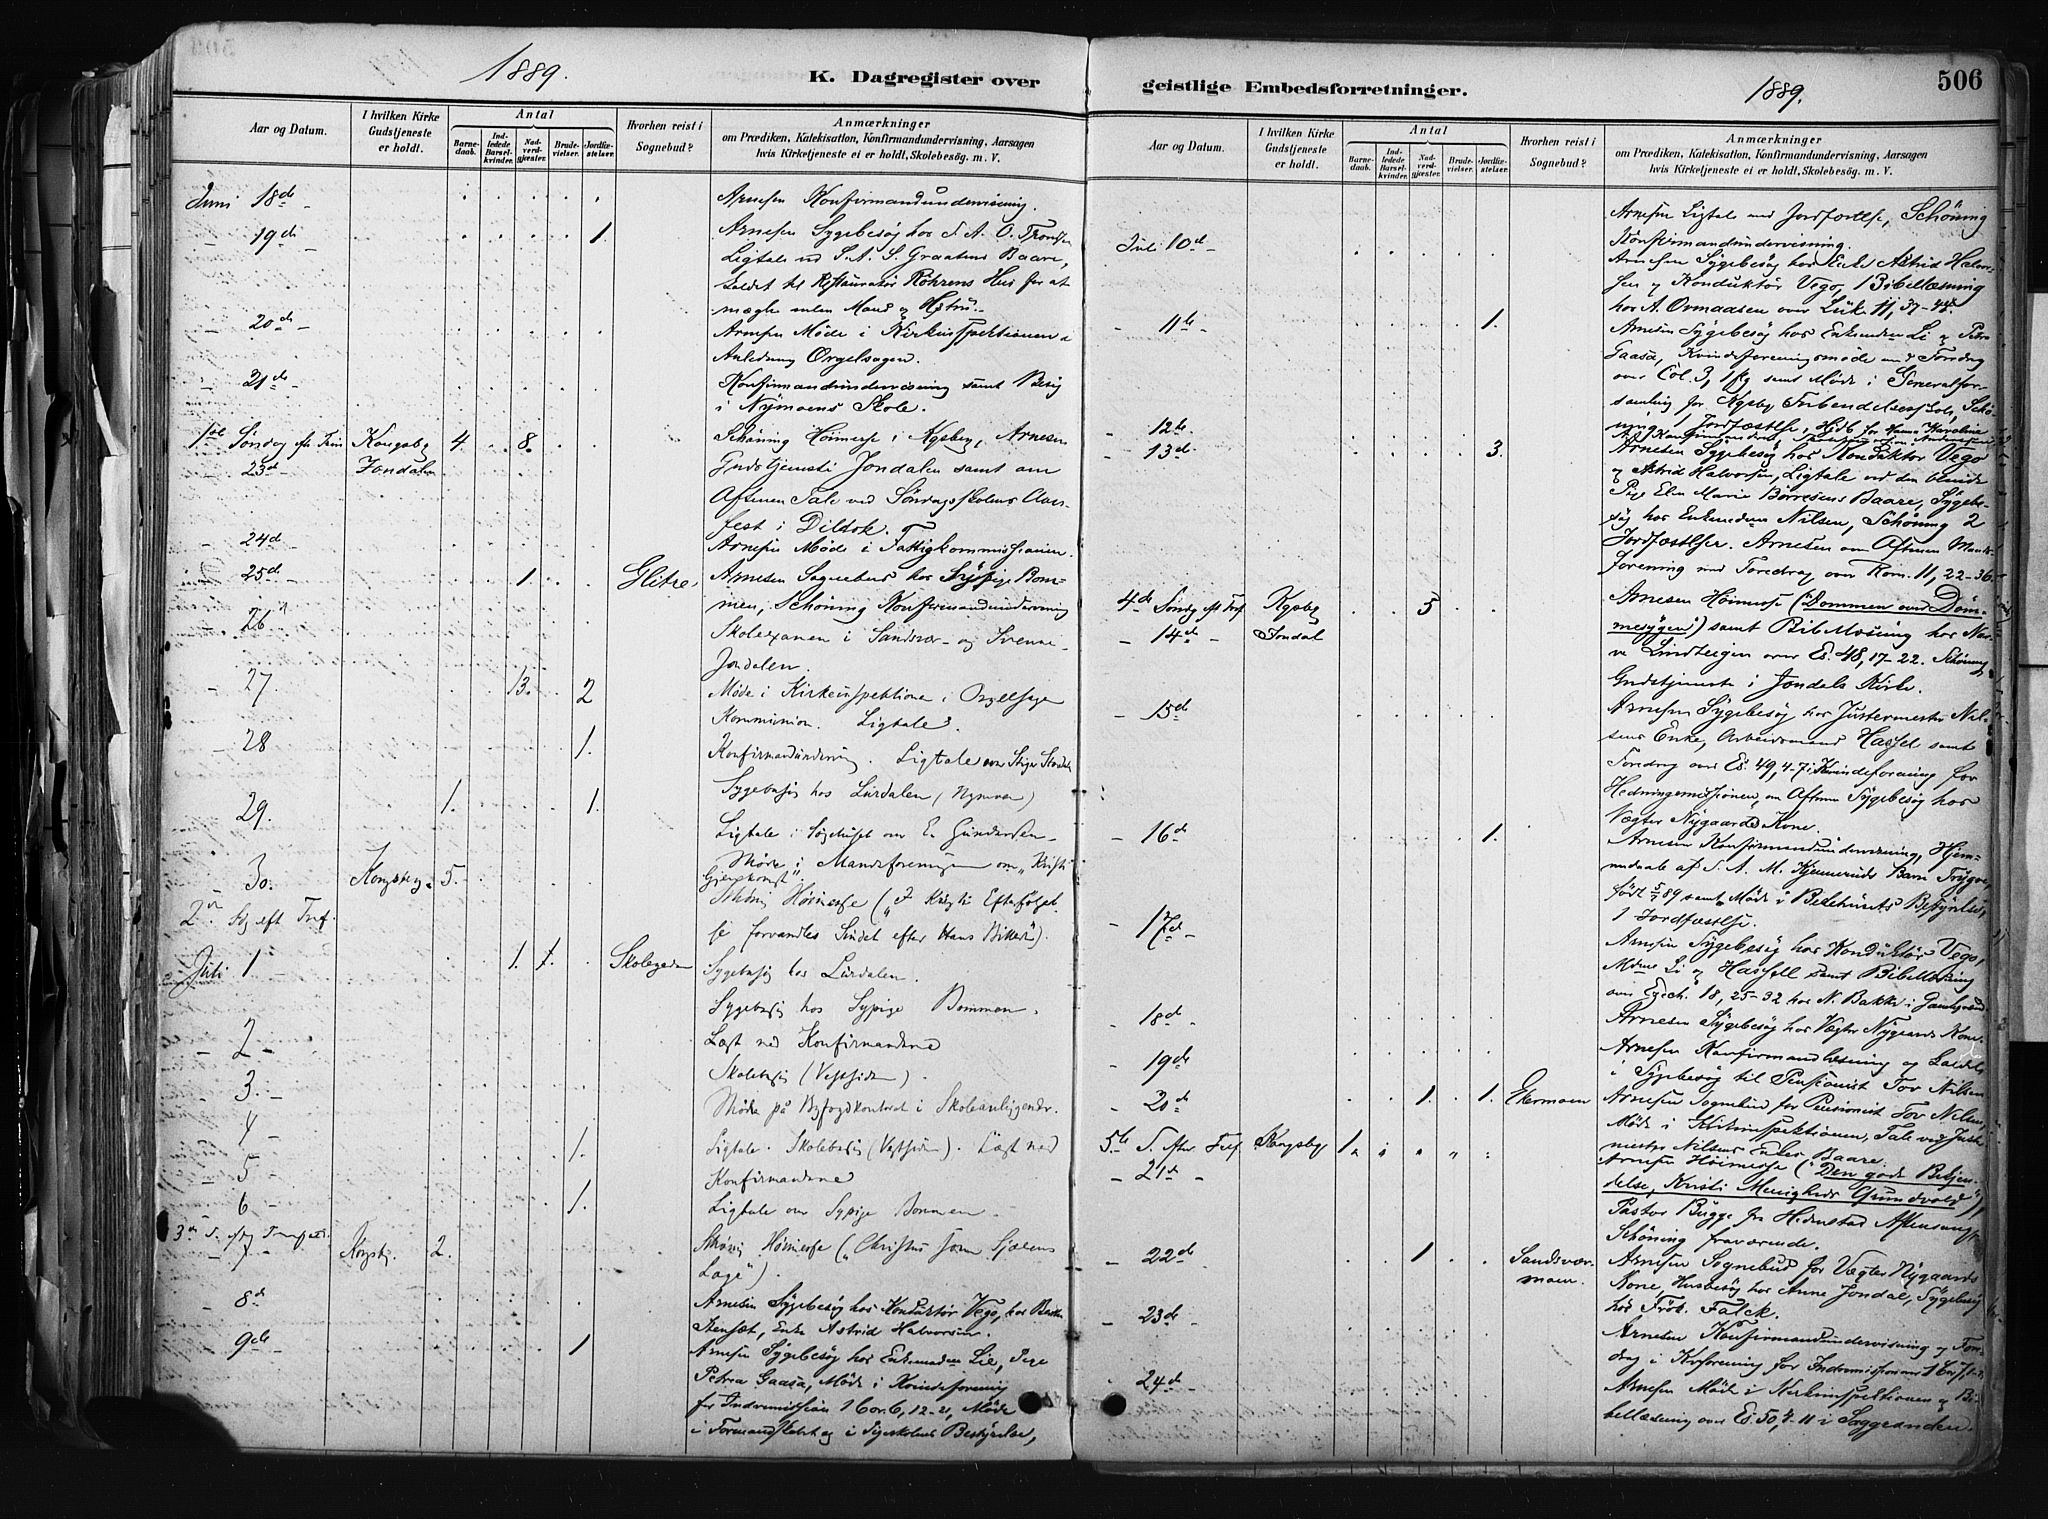 1889.
K. Dagregister over
geistlige Embedsforretninger.
1889.
506
Aar og Datum.
I hvilken Kirke Gudstjeneste er holdt.
Antal
Barnedaab.
Indledede Barselkvinder.
Nadverdgjester.
Brudevielser.
Jordfæstelser.
Hvorhen reist i Sognebud?
Anmærkninger
om Prædiken, Katekisation, Konfirmandundervisning, Aarsagen
hvis Kirketjeneste ei er holdt, Skolebesøg. m. V.
Juni 18de Arnesen Konfirmandundervisning.
19de 1. Arnesen Sygebesøg hos S. A. O. Tronsen
Ligtale ved S. A. S. Graatens Baare,
kaldet til Restauratør Röhrens Hus for at
mægle mlm Mand og Hstru.
20de Arnesen Møde i Kirkeinspektionen i
Anledning Orgelsagen.
21de Konfirmandundervisning samt Besøg
i Nymoens Skole.
1ste Søndag eft Trin Kongsberg 4 8. Schøning Høimesse i Kgsberg, Arnesen
23de Jondalen Gudstjeneste Jondalen samt om
Aftenen Tale ved Søndagsskolens Aars-
fest i Dildok.
24de Arnesen Møde i Fattigkommissionen.
25de 1. Glitre, Arnesen Sognebud hos Sypige Bom-
men, Schøning Konfirmandundervisning
26 Skoleexamen i Sandsvær og Svenne-
Jondalen.
27. 13. 2 Møde i Kirkeinspektione i Orgelsage
Kommunion. Ligtale.
28 1. Konfirmandundervisning. Ligtale over Stiger
Sygebesøg hos Lurdalen (Nymoen)
29. 1. 1. Ligtale i Sygehuset over E. Gundersen
Møde i Mandsforeningen om "Kristi
Gjenkomst".
30. Kongsberg. 5. Høimesse ("I Kristi Efterfølgel-
2den Sg eft Tref. se forvandles Sindet efter Hans Billede").
Juli 1 1. 1. Skolegaden Sygebesøg hos Lurdalen.
Sygebesøg hos Sypige Bommen.
2 Læst med Konfirmanderne
3. Skolebesøg (Vestsiden).
4 Møde på Byfogdkontoret i Skoleanliggender.
5 1. Ligtale. Skolebesøg (Vestsiden). Læst med
Konfirmanderne
6 1. Ligtale over Sypige Bommen.
3die S. efter Trefoldt.
7 Kongsbg. 2. Høimesse ("Christus som Sjælens
Læge").
8de Arnesen Sygebesøg hos Konduktør Vego, hos
Stensæt, Enke Astrid Halvorsen.
9de 1 Arnesen Sygebesøg hos Enkemadam Lie, Pige
Petra Gaasa, Møde i Kvindeforening
for Indremission 1 Cor. 6, 12-21, Møde
i Formandskabet og i Sygeskolens Bestyrelse,
Aar og Datum.
I hvilken Kirke Gudstjeneste er holdt.
Antal
Barnedaab.
Indledede Barselkvinder.
Nadverdgjester.
Brudevielser.
Jordfæstelser.
Hvorhen reist i Sognebud?
Anmærkninger
om Prædiken, Katekisation, Konfirmandundervisning, Aarsagen
hvis Kirketjeneste ei er holdt, Skolebesøg. m. V.
Arnesen Ligtale ved Jordfæstelse, Schöning
Konfirmandundervisning.
Juli 10de Arnesen Sygebesøg hos Enke Astrid Halvor-
sen og Konduktør Vego, Bibellæsning
hos A. Ormaasen over Luk. 11, 37-
11te 1. Arnesen Sygebesøg hos Enkemadam Li og Petra
Gaasa, Kvindeforeningsmøde med Foredrag
over Col. 3, 1 flg samt Møde i Generalfor-
samling for Kgsbg
12te 1 Jordfæstelse,
13de 3. Arnesen Sygebesøg hos Konduktør Vego
og Astrid Halvorsen, Ligtale ved den blinde
Pige Elin Marie Börresens Baare, Sygebe-
søg hos Enkemadam Nilsen, Schöning 2
Jordfæstelser. Arnesen om Aftenen Mands-
forening med Foredrag over Rom. 11, 22-36.
4de Søndg eft Tref Kgsbg 5 Arnesen Høimesse ("Dommen over Døm-
14de Jondal mesygen") samt Bibellæsning hos
Lindtbergen over Es. 48, 17-22. Schöning
Gudstjeneste i Jondals Kirke.
15de Arnesen Sygebesøg hos Justermester Nil-
sens Enke, Arbeidsmand Hassel samt
Foredrag over Es. 49, 4-7 i Kvindeforening for
Hedningemissionen, om Aftenen Sygebesøg hos
Vægter Nygaards Kone.
16de 1. Arnesen Konfirmandundervisning, Hjem-
medaab af S. A. M. Kjennerads Barn Trygve,
født 5/7 89 samt Møde i Bestyrelse,
1 Jordfæstelse.
17de Arnesen Sygebesøg hos Konduktør Vego,
Mdme Li og Hassel samt Bibellæsning
over Ezech. 18, 25-32 hos N. Bakke i
18de Arnesen Sygebesøg hos Vægter Nygaards Kone.
19de Arnesen Konfirmandlæsning og kaldet
i Sygebesøg til Pensionist Tor Nilsen
20de 1. 1. Ekermoen Arnesen Sognebud for Pensionist Tor Nilsen,
Møde i Kirkeinspektionen, Tale ved Juster-
mester Nilsens Enkes Baare.
5te S. efter Tref. Kongsbg. 1. Arnesen Høimesse ("Den gode Bekjen-
21de delse, Kristi Menigheds Grundvold"),
Pastor Bugge fra Hedenstad Aftensang,
Schöning fraværende.
22de 1 Sandsvær-
moen. Arnesen Sognebud for Vægter Nygaards
Kone, Husbesøg hos Anne Jondal, Sygebesøg
hos Frök. Falck.
23de Arnesen Konfirmandundervisning og Fore-
drag i Krforening for Indremissionen
24de Arnesen Møde i Kirkeinspektionen og Bi-
bellæsning over Es. 50, 4-11 i Saggrenden.